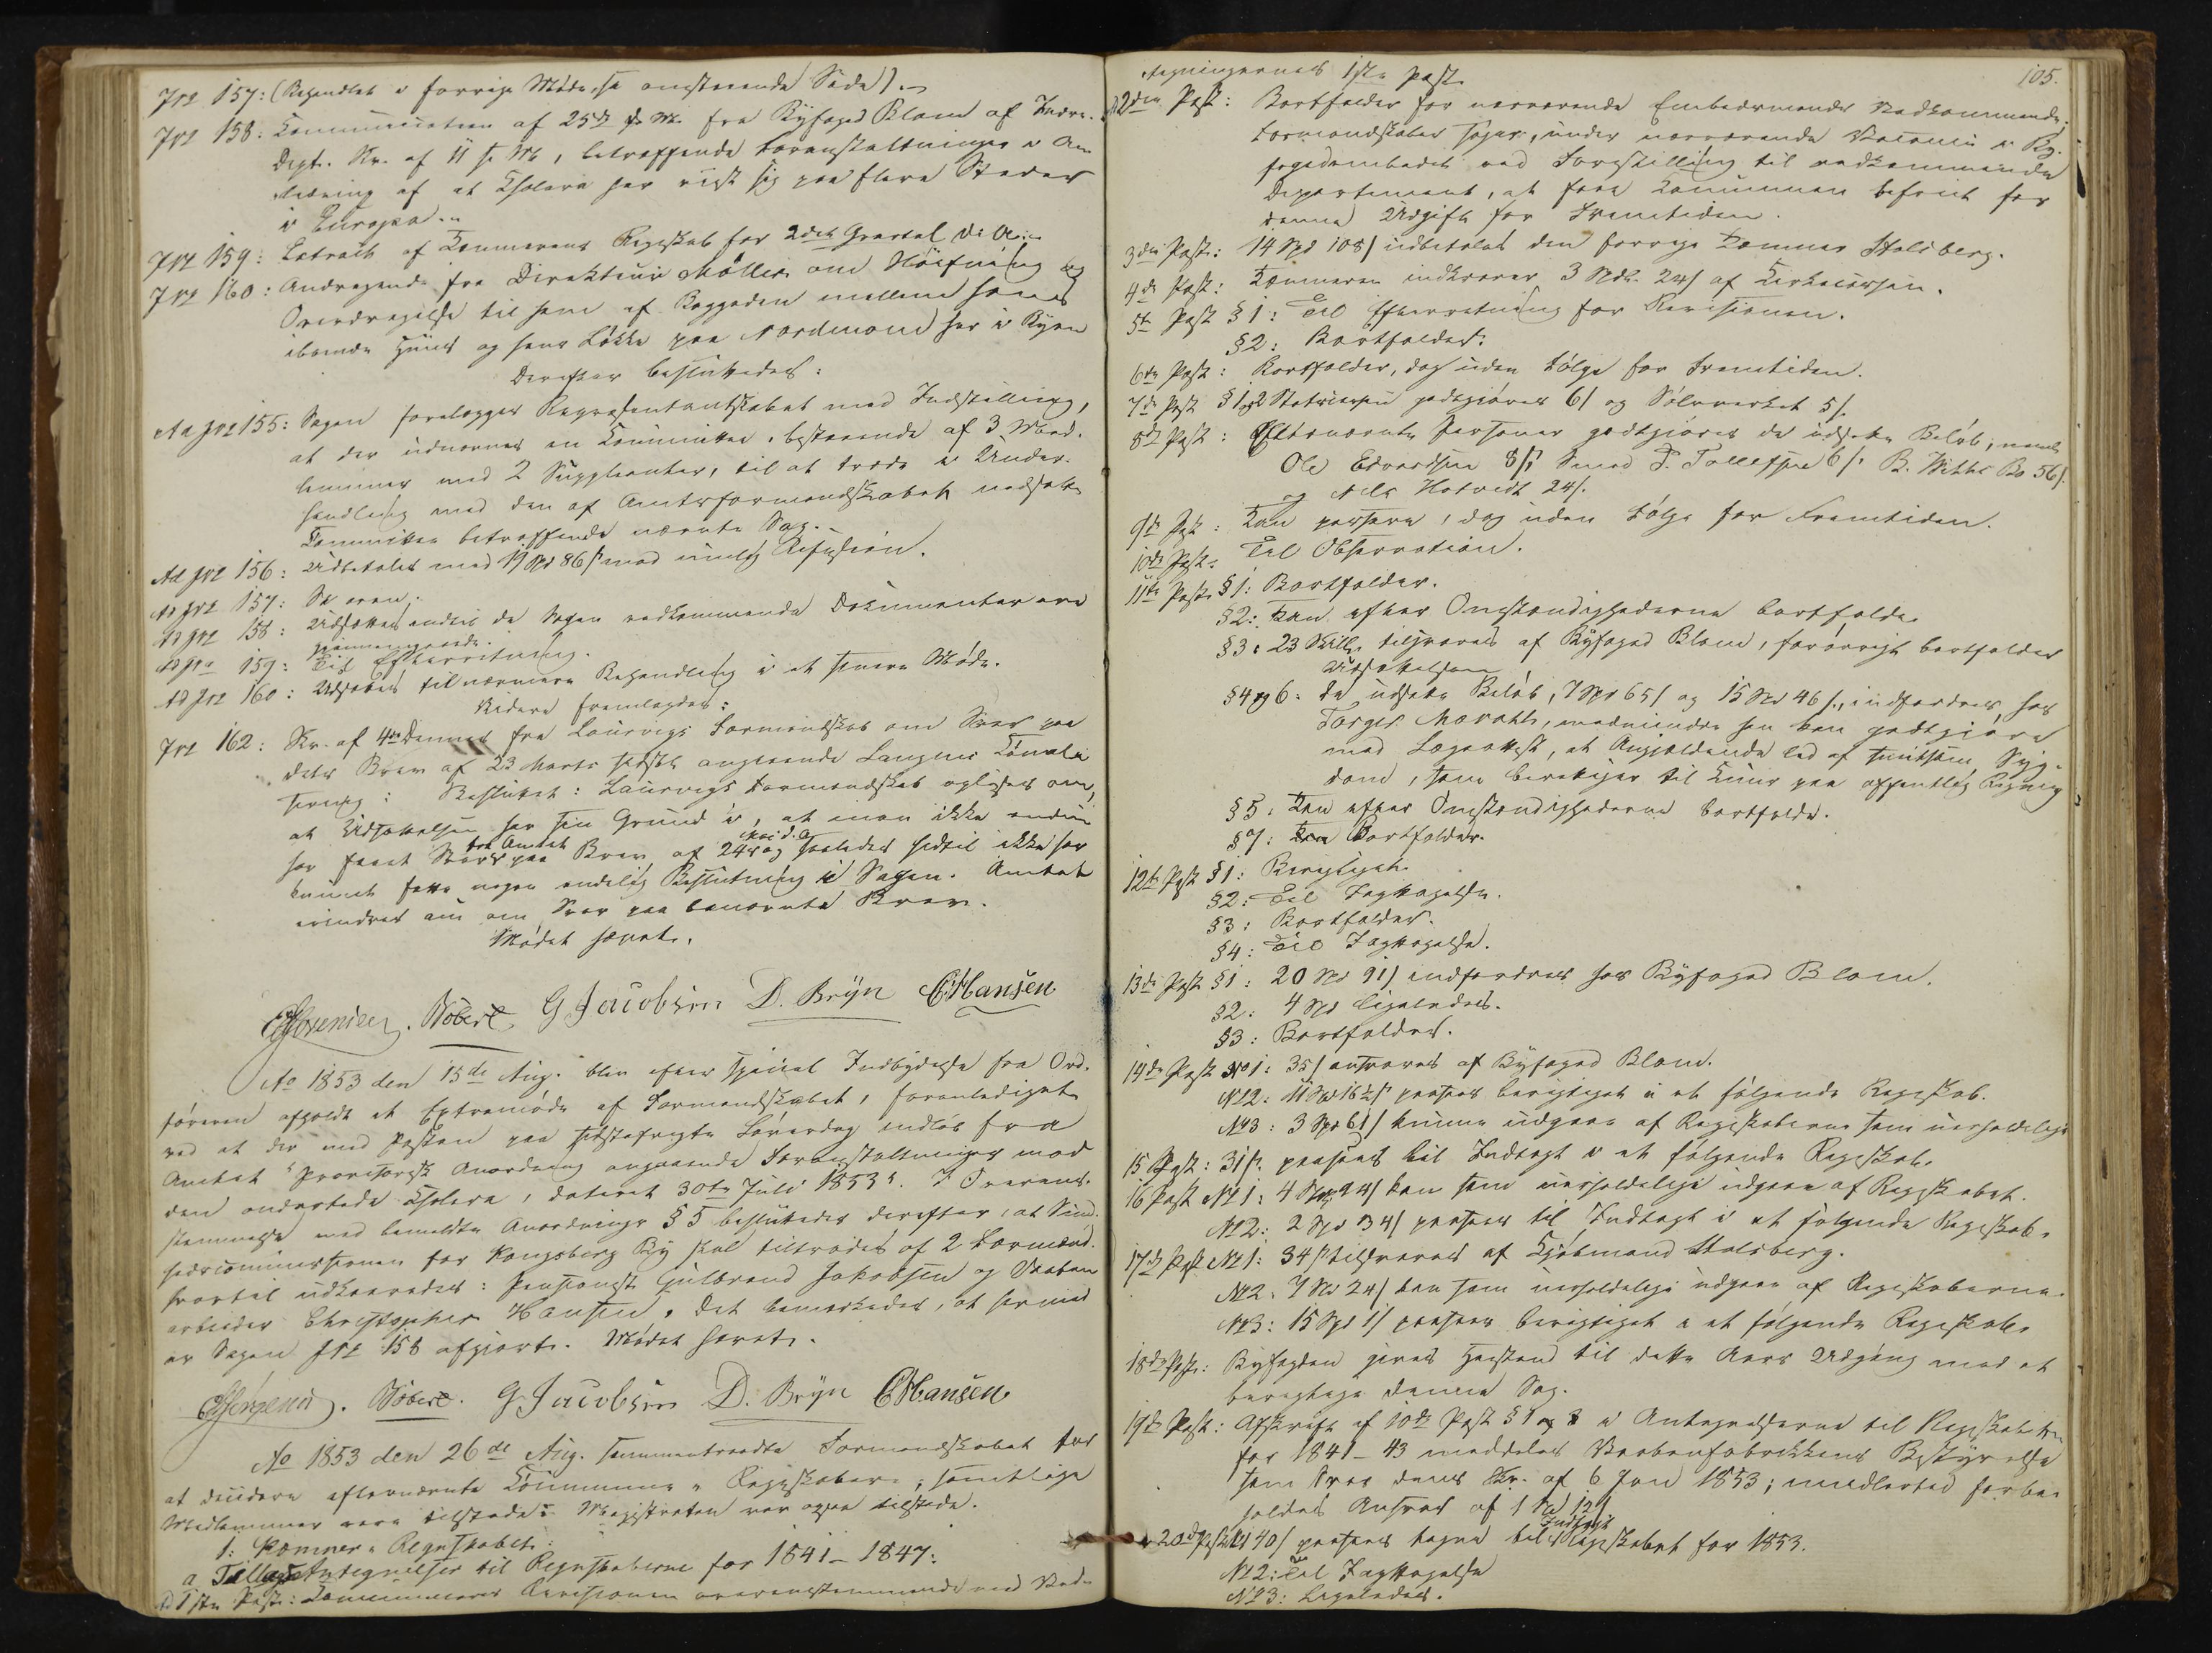 Jr№ 157: (Behandlet i forrige Møde, se omstaaende Side).
Jr№ 158: Communication af 25de f. M. fra Byfoged Blom af Indre-
Dept. Skr. af 11 s. M., betræffende Foranstaltninger i An-
ledning af at Cholera har viist sig paa flere Steder
i Europa.
Jr№ 159: Extract af Kæmnerens Regnskab for 2det Qvartal d. A.
Jr№ 160: Andragende fra Direkteur Møller om Udvisning og
Overdragelse til ham af Baggaden mellem hans
iboende Huus og hans Løkke paa Nordmoen her i Byen
Derefter besluttedes:
Ad Jr№ 155: Sagen forelægges Repræsentantskabet med Indstilling,
at der udnævnes en Committee, bestaaende af 3 Med-
lemmer med 2 Suppleanter, til at træde i Under-
handling med den af Amtsformandskabet nedsatte
Committee betræffende nævnte Sag.
Ad Jr№ 156: Udbetales med 19 Spd 86 s mod mulig Refusion.
Ad Jr№ 157: Se oven.
Ad Jr№ 158: Udsættes indtil de Sagen vedkommende Dokumenter ere
gjennemgaaede.
Ad Jr№ 159: Til Efterretning.
Ad Jr№ 160: Udsættes til nærmere Behandling i et senere Møde.
Videre fremlagdes:
Jr№ 162: Skr. af 4de Dennes fra Laurvigs Formandskab om Svar paa
dets Brev af 23 Marts sidstl. angaaende Laugens Canali-
sering: Besluttet: Laurvigs Formandskab oplyses om,
at Udsættelsen har sin Grund i, at man ikke endnu
har faaet Svar fra Amtet paa Brev af 24 Mai d. A. og saaledes hidtil ikke har
kunnet fatte nogen endelig Beslutning i Sagen. Amtet
erindres nu om Svar paa benævnte Brev.
Mødet hævet.
Sørensen. Støbert G Jacobsen D. Bryn C Hansen
Ao 1853 den 15de Aug. blev efter speciel Indbydelse fra Ord-
føreren afholdt et Extramøde af Formandskabet, foranlediget
ved at der med Posten paa sidstafvigte Løverdag indløb fra
Amtet "Provisorisk Anordning angaaende Foranstaltninger mod
den ondartede Cholera, dateret 30te Juli 1853". I Overens-
stemmelse med bemeldte Anordnings § 5 besluttedes derefter, at Sund-
hedscommissionen for Kongsberg By skal tiltrædes af 2 Formænd.
hvortil udkaaredes: Pensionist Gulbrand Jakobsen og Vaaben-
arbeider Christopher Hansen. Det bemærkedes, at hermed
er Sagen Jr№ 158 afgjort. Mødet hævet.
Sørensen. Støbert. G. Jacobsen D. Bryn C Hansen
Ao 1853 den 26de Aug. sammentraadte Formandskabet for
at decidere efternævnte Commune-Regnskaber; samtlige
Medlemmer vare tilstede. Magistraten var ogsaa tilstede.
1: Kæmner-Regnskabet:
a Tillægs Antegnelser til Regnskaberne for 1841–1847:
Ad 1ste Post: Communens Revisionen overensstemmende med Ved-
105.
tegningernes 1ste Post
Ad 2den Post: Bortfalder for nærværende Embedsmands Vedkommende.
Formandskabet søger, under nærværende Vacance i By-
fogedembedet ved Forestilling til vedkommende
Departement, at faae Communen befriet for
denne Udgift for Fremtiden.
3die Post: 14 Spd 108 s udbetales den forrige Kæmner Stalsberg.
4de Post: Kæmneren indkræver 3 Spd. 24 s af Kirkecassen.
5te Post § 1: Til Efterretning for Revisionen.
§ 2: Bortfalder.
6te Post: Bortfalder, dog uden Følge for Fremtiden.
7de Post § 1 og 2 Statscassen godtgjøres 6 s og Sølvverket 5 s.
8de Post: Efternævnte Personer godtgjøres de udsatte Beløb, neml.
Ole Edvardsen 8 s, Smed P. Tollefsen 6 s, B. Withs Bo 56 s.
og Nils Hotvedt 24 s.
9de Post: Kan passere, dog uden Følge for Fremtiden.
10de Post: Til Observation.
11te Post § 1: Bortfalder.
§ 2: Kan efter Omstændighederne bortfalde.
§ 3: 23 Skill. tilsvares af Byfoged Blom, forøvrigt bortfalder
Udsættelsen
§ 4 og 6: De udsatte Beløb, 7 Spd 65 s og 15 Spd 46 s, indfordres hos
Torger Morath, medmindre han kan godtgjøre
med Lægeattest, at Angjældende led af smitsom Syg-
dom, som berettiger til Cuur paa offentlig Regning
§ 5: Kan efter Omstændighederne bortfalde.
§ 7: Bortfalder.
12te Post § 1: Berigtiget.
§ 2: Til Iagttagelse.
§ 3: Bortfalder.
§ 4: Til Iagttagelse.
13de Post § 1: 20 Spd 91 s indfordres hos Byfoged Blom.
§ 2: 4 Spd ligeledes.
§ 3: Bortfalder.
14de Post № 1: 35 s ansvares af Byfoged Blom.
№ 2: 11 Spd 16½ s paasees berigtiget i et følgende Regnskab.
№ 3: 3 Spd 61 s kunne udgaae af Regnskaberne som uerholdelige
15 Post: 31 s. paasees til Indtægt i et følgende Regnskab.
16 Post № 1: 4 Spd 94 s kan som uerholdelige udgaae af Regnskabet.
№ 2: 2 Spd 34 s paasees til Indtægt i et følgende Regnskab.
17de Post № 1: 34 s tilsvares af Kjøbmand Stalsberg.
№ 2: 7 Spd 24 s kan som uerholdelige udgaae af Regnskaberne.
№ 3: 15 Spd 1 s paasees berigtiget i et følgende Regnskab.
18de Post: Byfogden gives Henstand til dette Aars Udgang med at
berigtige denne Sag.
19de Post: Afskrift af 10de Post § 1 og 8 i Antegnelserne til Regnskaberne
for 1841–43 meddeles Vaabenfabrikkens Bestyrelse
som Svar paa dens Skr. af 6 Jan 1853; imidlertid forbe-
holdes Ansvar af 1 Spd 12 s
20de Post № 1 40 s paasees tagne til Indtægt i Regnskabet for 1853.
№ 2: Til Iagttagelse
№ 3: Ligeledes.